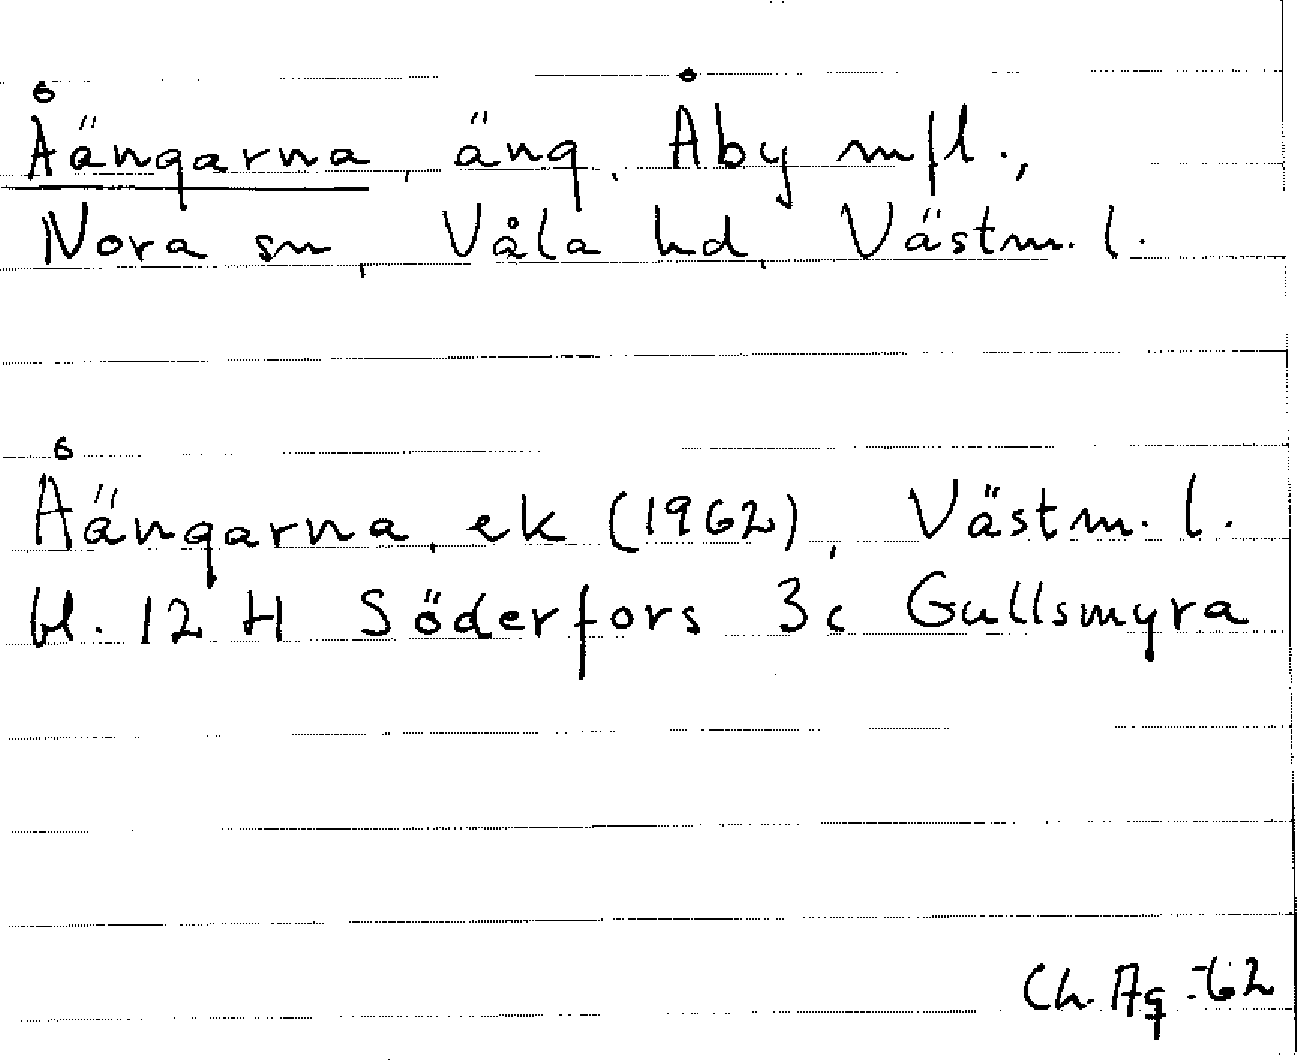 Åängarna, äng, Åby mfl.,
Nora sn, Våla hd, Västm. l.
Åängarna, ek (1962), Västm. l.
bl. 12 H Söderfors 3c Gullsmyra
Ch. Ag -62